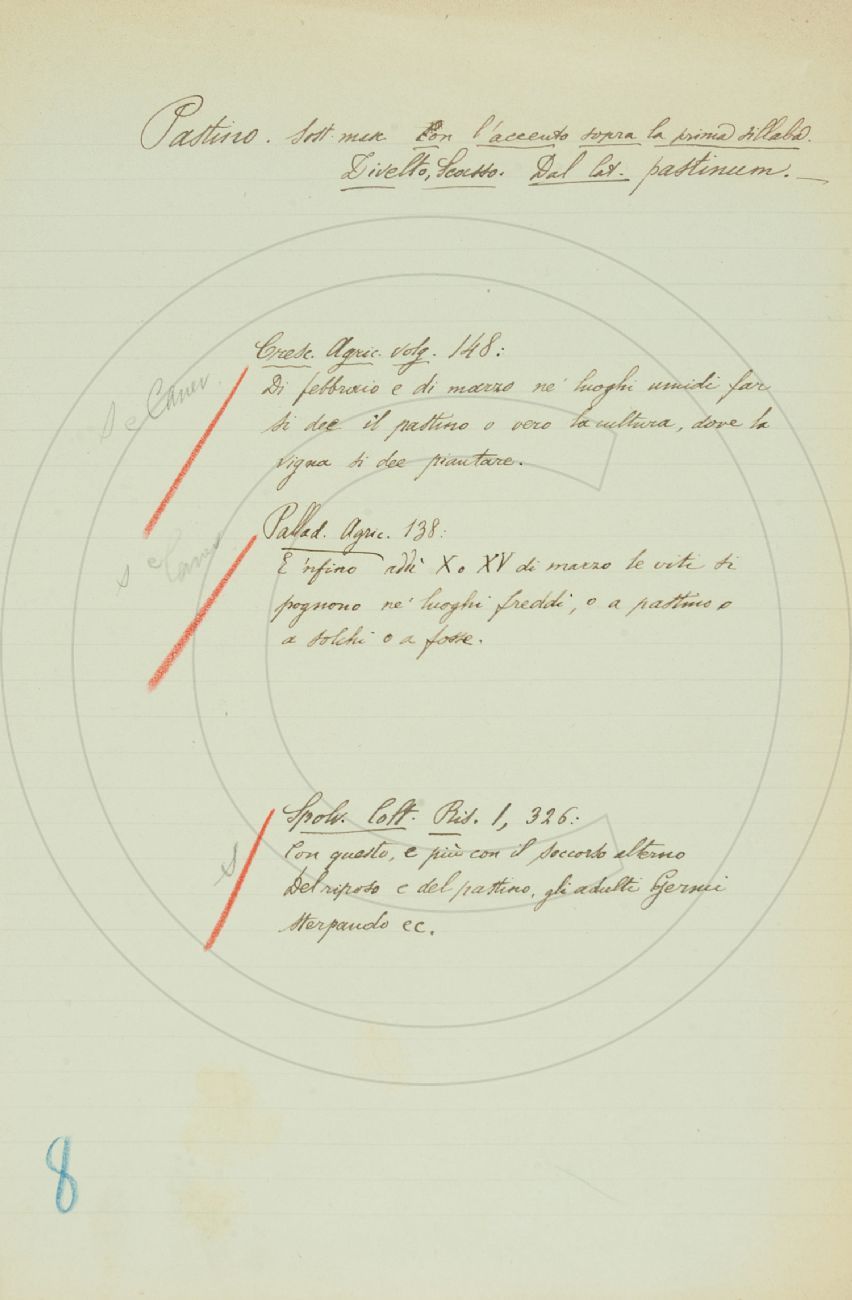 Pastino. Sost. mas. Con l'accento sopra la prima sillaba.
Divelto, Scasso. Dal lat. pastinum. —
Cresc. Agric. volg. 148:
Di febbraio e di marzo ne' luoghi umidi far
si dee il pastino o vero la cultura, dove la
vigna si dee piantare.
Pallad. Agric. 138:
E 'nfino addì X o XV di marzo le viti si
pognono ne' luoghi freddi, o a pastino o
a solchi o a fosse.
Spolv. Colt. Ris. 1, 326:
Con questo, e più con il soccorso alterno
Del riposo e del pastino, gli adulti Germi
sterpando ec.
S
8